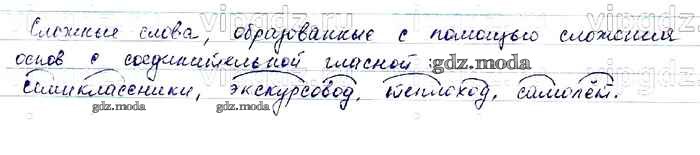 Сложные слова, образованные с помощью сложения
основ с соединительной гласной : gdz.moda
семиклассники, экскурсовод, теплоход, самолёт.
gdz.moda gdz.moda gdz.moda